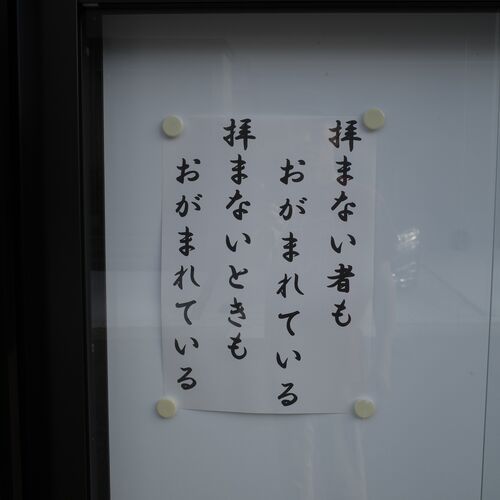 拝まない者も
おがまれている
拝まないときも
おがまれている